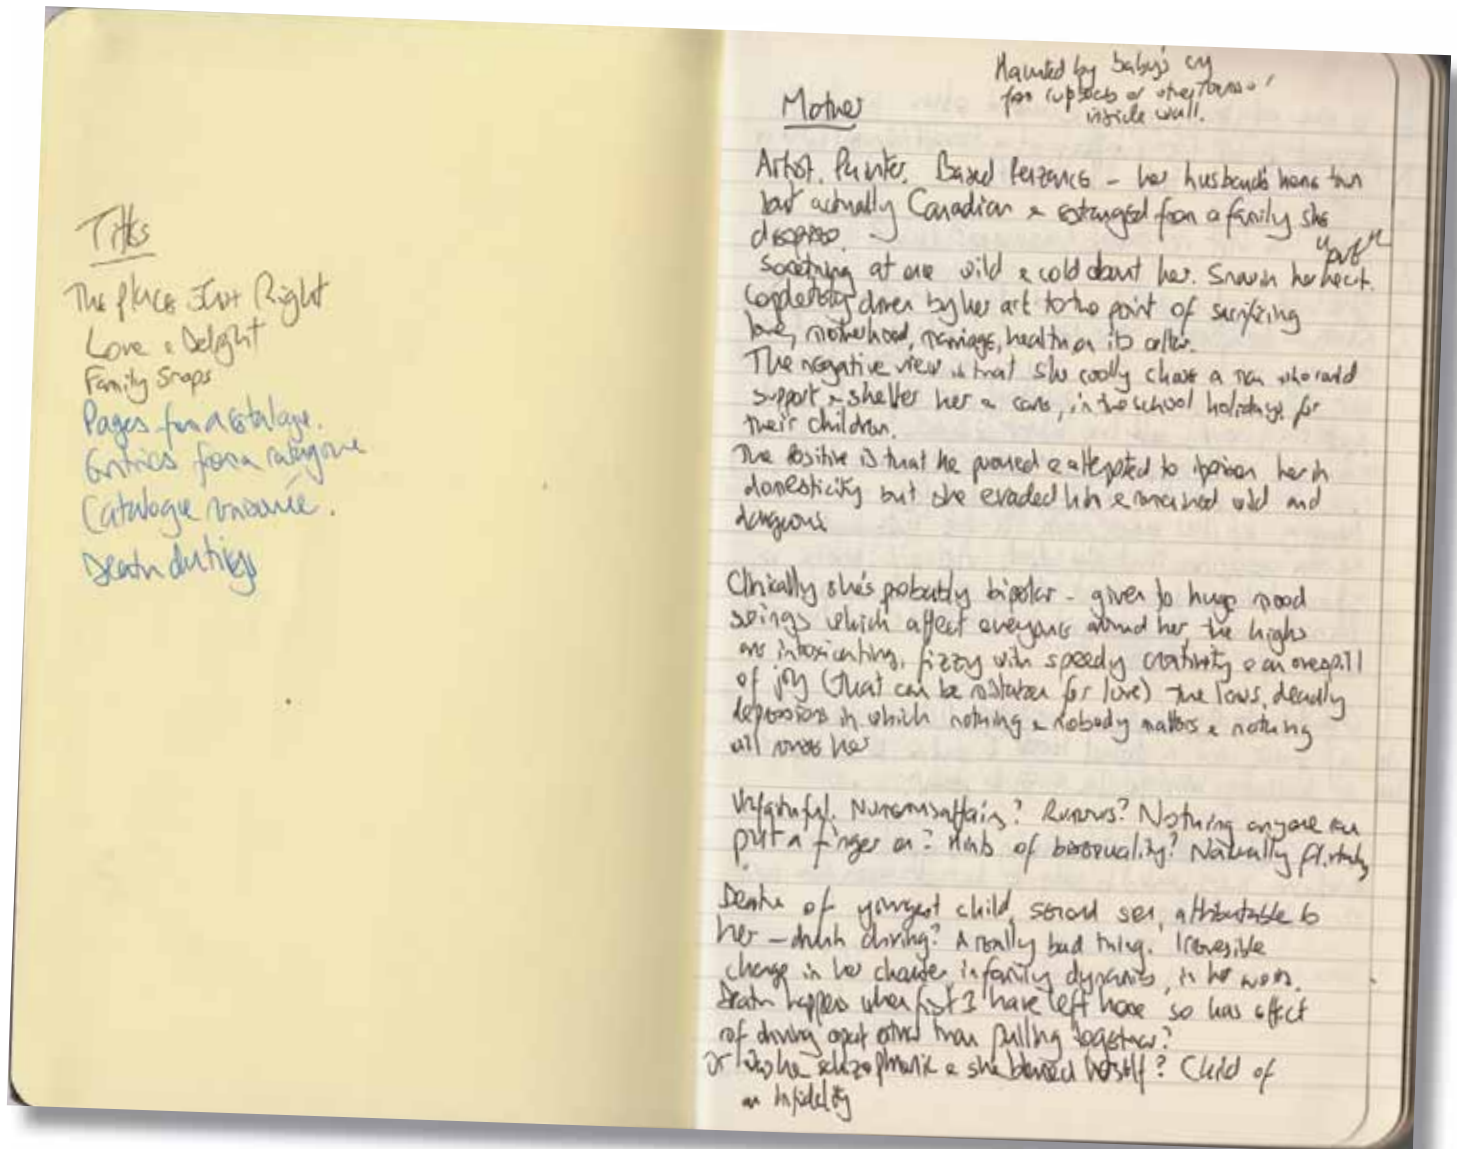 Titles
The Place Just Right
Love & Delight
Family Snaps
Pages from a Catalogue.
Entries from a Catalogue
Catalogue raisonnée.
Death duties
Haunted by baby's cry
from cupboards or
inside wall.
Mother
Artist. Painter. Based Penzance – her husband's home town
but actually Canadian & estranged from a family she
despises.
"out"
Something at once wild & cold about her. Snow in her heart.
Completely driven by her art to the point of sacrificing
love, motherhood, marriage, health on its altar.
The negative view is that she coolly chose a man who could
support & shelter her & care, in the school holidays, for
their children.
The positive is that he pursued & attempted to imprison her in
domesticity but she evaded him & remained wild and
dangerous
Clinically she's probably bipolar – given to huge mood
swings which affect everyone around her, the highs
are intoxicating, fizzy with speedy creativity & an overspill
of joy (that can be mistaken for love) the lows, deadly
depressions in which nothing & nobody matters & nothing
will rouse her
Unfaithful. Numerous affairs? Rumours? Nothing anyone can
put a finger on? Hints of bisexuality? Naturally flirty
Death of youngest child, second son, attributable to
her – drunk driving? A really bad thing. Irreversible
change in her character, in family dynamics, in her work.
Death happens when first 3 have left home so has effect
of driving apart rather than pulling together?
Or was he schizophrenic & she blamed herself? Child of
an infidelity